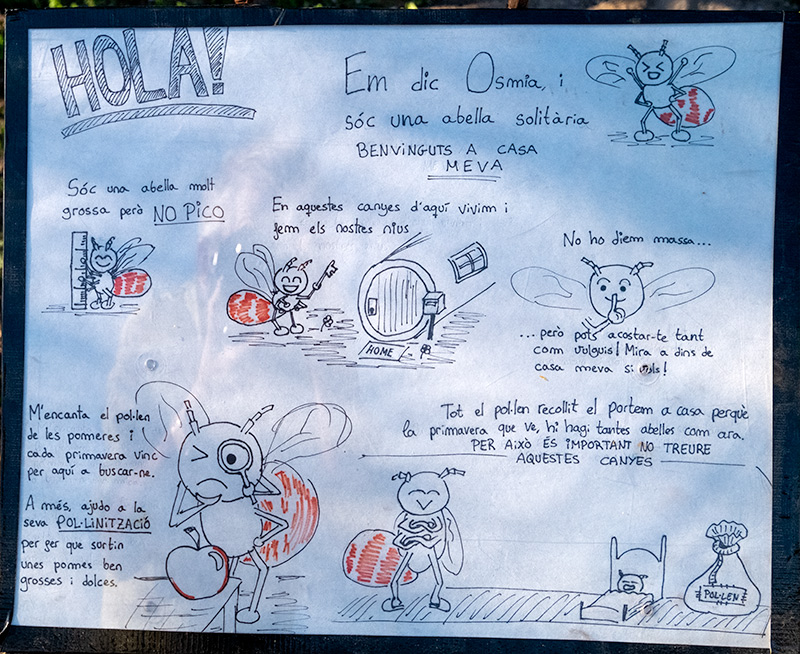 HOLA!
Em dic Osmia, i
sóc una abella solitària
BENVINGUTS A CASA
MEVA
Sóc una abella molt
grossa però NO PICO
En aquestes canyes d'aquí vivim i
fem els nostres nius
HOME
No ho diem massa...
...però pots acostar-te tant
com vulguis! Mira a dins de
casa meva si vols!
M'encanta el pol·len
de les pomeres i
cada primavera vinc
per aquí a buscar-ne.
A més, ajudo a la
seva POL·LINITZACIÓ
per fer que sortin
unes pomes ben
grosses i dolces.
Tot el pol·len recollit el portem a casa perquè
la primavera que ve, hi hagi tantes abelles com ara.
PER AIXÒ ÉS IMPORTANT NO TREURE
AQUESTES CANYES
POL·LEN